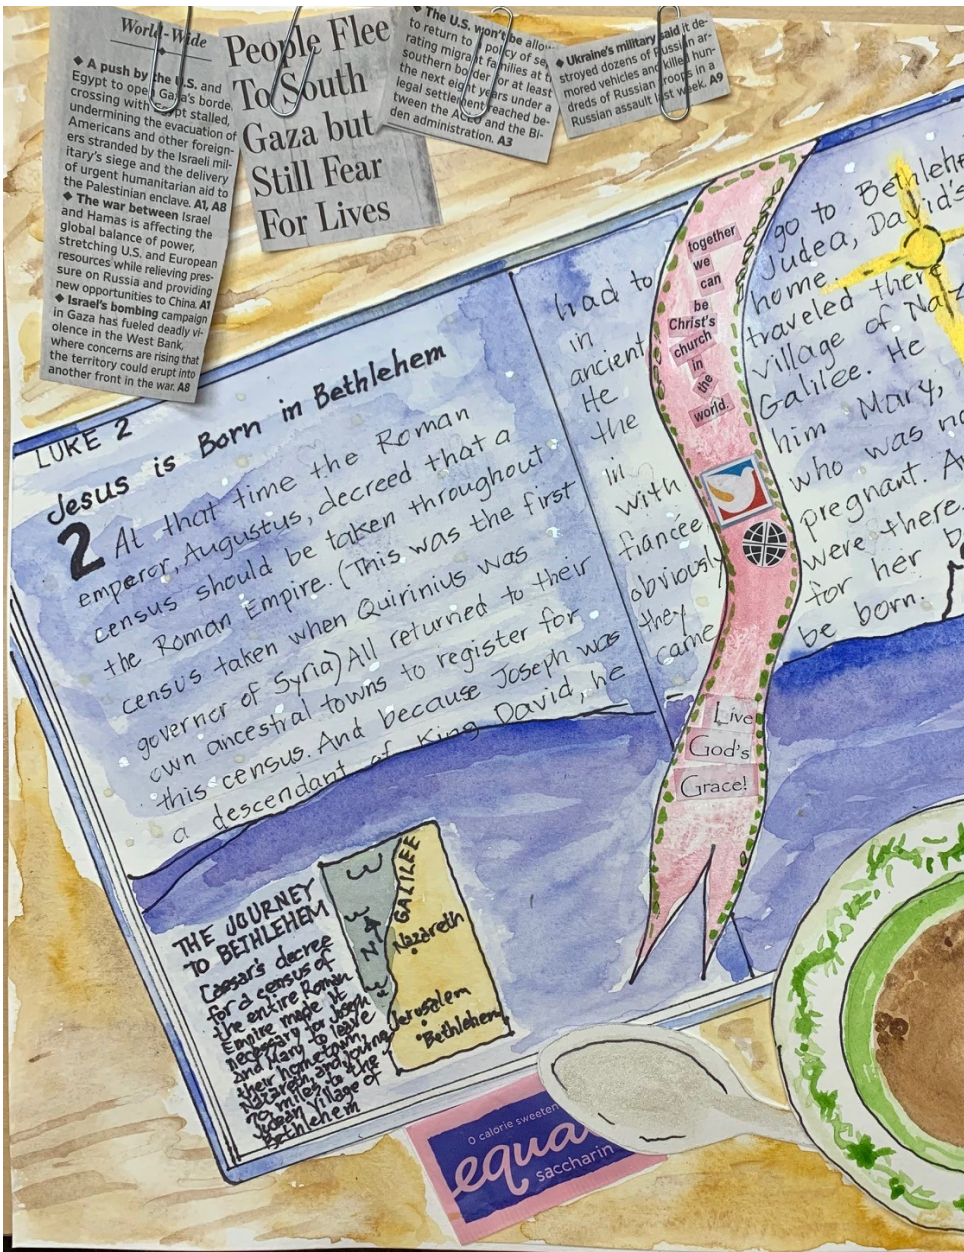 World-Wide
◆ A push by the U.S. and
Egypt to open Gaza's border
crossing with Egypt stalled,
undermining the evacuation of
Americans and other foreign-
ers stranded by the Israeli mil-
itary's siege and the delivery
of urgent humanitarian aid to
the Palestinian enclave. A1, A8
◆ The war between Israel
and Hamas is affecting the
global balance of power,
stretching U.S. and European
resources while relieving pres-
sure on Russia and providing
new opportunities to China. A1
◆ Israel's bombing campaign
in Gaza has fueled deadly vi-
olence in the West Bank,
where concerns are rising that
the territory could erupt into
another front in the war. A8
People Flee
To South
Gaza but
Still Fear
For Lives
◆ The U.S. won't be allow
to return to policy of se
rating migrant families at t
southern border for at least
the next eight years under a
legal settlement reached be-
tween the ACLU and the Bi-
den administration. A3
◆ Ukraine's military said it de-
stroyed dozens of Russian ar-
mored vehicles and killed hun-
dreds of Russian troops in a
Russian assault last week. A9
LUKE 2
Jesus is Born in Bethlehem
2 At that time the Roman
emperor, Augustus, decreed that a
census should be taken throughout
the Roman Empire. (This was the first
census taken when Quirinius was
governor of Syria) All returned to their
own ancestral towns to register for
this census. And because Joseph was
a descendant of King David, he
had to go to Bethlehe
in Judea, David's
ancient home
He traveled there
the village of Naz
in Galilee. He
with him Mary,
fiancée who was no
obviously pregnant.
they were there
came for her b
be born.
together
we
can
be
Christ's
church
in
the
world.
Live
God's
Grace!
THE JOURNEY
TO BETHLEHEM
Caesar's decree
for a census of
the entire Roman
Empire made it
necessary for Joseph
and Mary to leave
their hometown,
Nazareth, and
70 miles to the
Judean village of
Bethlehem
GALILEE
Nazareth
Jerusalem
Bethlehem
0 calorie sweeten
equa
saccharin